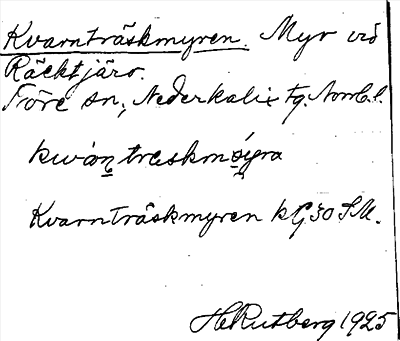 Kvarnträskmyren. Myr vid
Räcktjärv.
Töre sn, Nederkalix tg. Norrb. l.
Kvarnträskmyren k G 30 S.M.
H Rutberg 1925